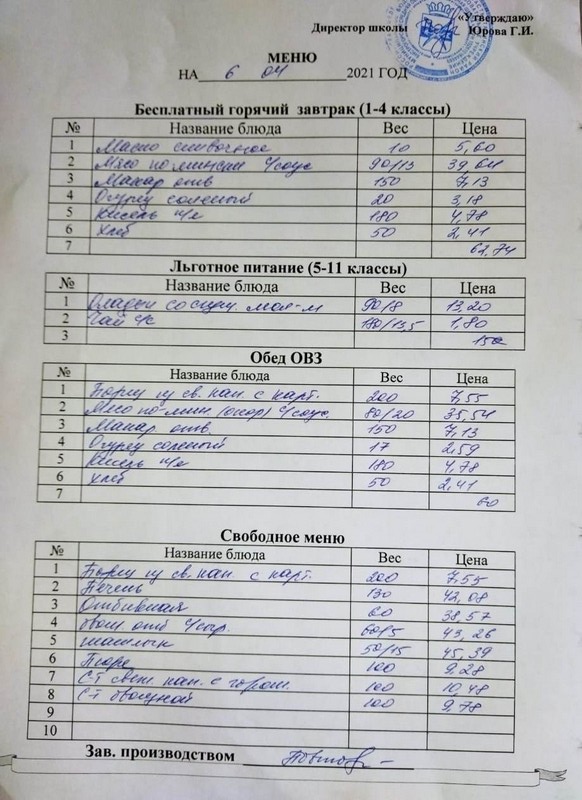 «Утверждаю»
Директор школы Юрова Г.И.
МЕНЮ
НА 6 04 2021 ГОД
Бесплатный горячий завтрак (1-4 классы)
№ Название блюда Вес Цена
1 Масло сливочное 10 5,60
2 Мясо по-мински с/соус 90/15 39,64
3 Макар отв 150 7,13
4 Огурец соленый 20 3,18
5 Кисель 180 4,78
6 Хлеб 50 2,41
7 62,74
Льготное питание (5-11 классы)
№ Название блюда Вес Цена
1 Оладьи со сгущ. мол-м 90/8 13,20
2 Чай 180/13,5 1,80
3 15
Обед ОВЗ
№ Название блюда Вес Цена
1 Борщ из св. кап. с карт. 200 7,55
2 Мясо по-мин с/соус 80/20 35,54
3 Макар отв 150 7,13
4 Огурец соленый 17 2,59
5 Кисель 180 4,78
6 Хлеб 50 2,41
7 60
Свободное меню
№ Название блюда Вес Цена
1 Борщ из св. кап. с карт. 200 7,55
2 Печень 130 42,08
3 Отбивная 60 38,57
4 отб с/сыр. 60/5 43,26
5 шашлык 50/15 45,39
6 Пюре 100 9,28
7 С-т свеж кап. с горош. 100 10,48
8 С-т овощной 100 9,78
9
10
Зав. производством